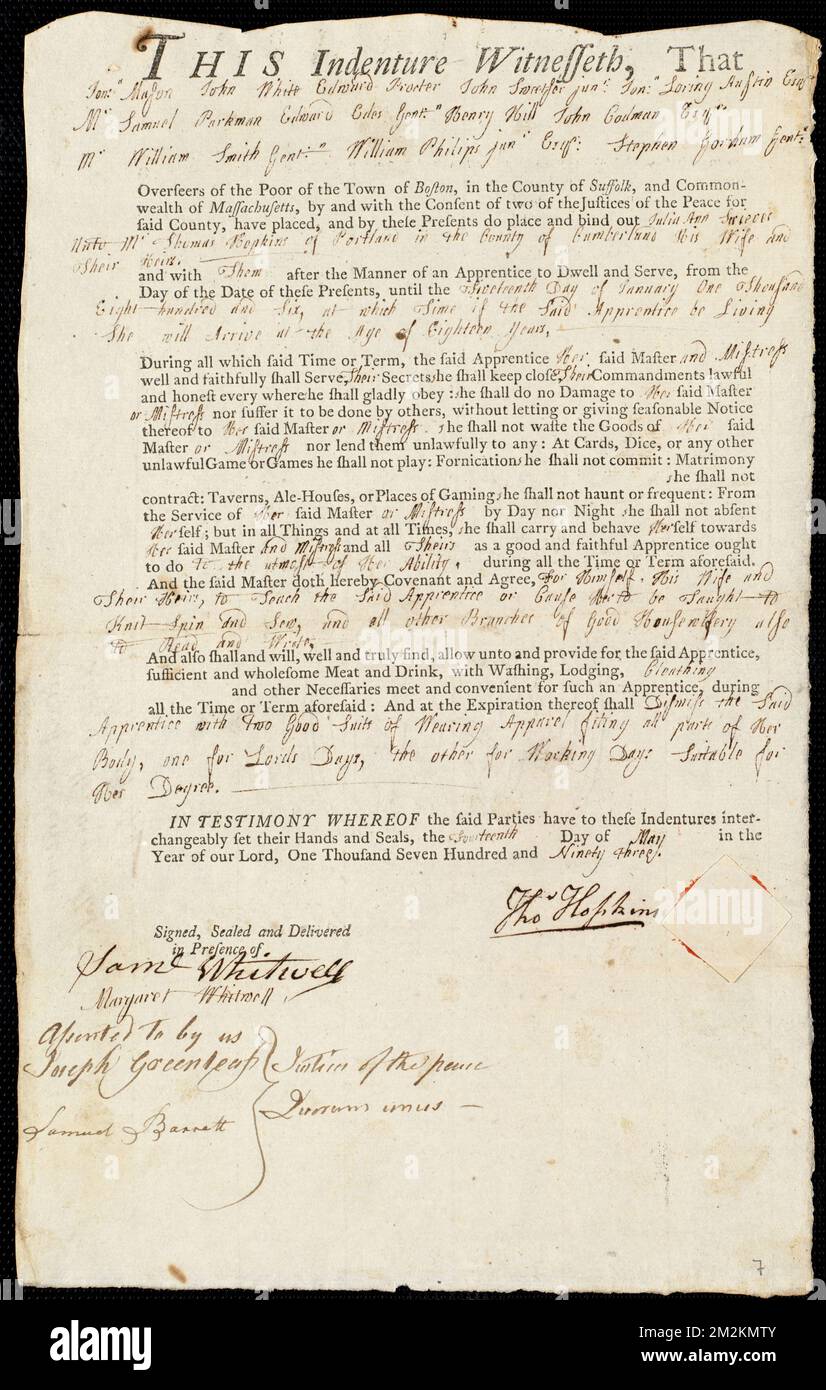 THIS Indenture Witnesseth, That
Jonan Mason John White Edward Procter John Sweetser junr Jonan Loring Austin Esqrs
Mr Samuel Parkman Edward Edes Gentn Henry Hill John Codman Esqrs
Mr William Smith Gentn William Philips junr Esqr Stephen Gorham Gentn
Overseers of the Poor of the Town of Boston, in the County of Suffolk, and Common-
wealth of Massachusetts, by and with the Consent of two of the Justices of the Peace for
said County, have placed, and by these Presents do place and bind out Julia Ann
Unto Mr Thomas Hopkins of Portland in the County of Cumberland His Wife and
Their Heirs.
and with Them after the Manner of an Apprentice to Dwell and Serve, from the
Day of the Date of these Presents, until the Day of January One Thousand
Eight hundred and Six, at which Time if the Said Apprentice be Living
She will Arrive at the Age of Eighteen Years,
During all which said Time or Term, the said Apprentice Her said Master and Mistress
well and faithfully shall Serve, Their Secrets she shall keep close, Their Commandments lawful
and honest every where she shall gladly obey: she shall do no Damage to Her said Master
or Mistress nor suffer it to be done by others, without letting or giving seasonable Notice
thereof to Her said Master or Mistress. she shall not waste the Goods of Her said
Master or Mistress nor lend them unlawfully to any: At Cards, Dice, or any other
unlawful Game or Games she shall not play: Fornication she shall not commit: Matrimony
she shall not
contract: Taverns, Ale-Houses, or Places of Gaming, she shall not haunt or frequent: From
the Service of Her said Master or Mistress by Day nor Night she shall not absent
Herself; but in all Things and at all Times, she shall carry and behave Herself towards
Her said Master and Mistress and all Theirs as a good and faithful Apprentice ought
to do to the utmost of Her Ability, during all the Time or Term aforesaid.
And the said Master doth hereby Covenant and Agree, For Himself, His Wife and
Their Heirs, to Teach the Said Apprentice or Cause Her to be Taught to
Knit Spin and Sew, and all other Branches of Good Housewifery also
to Read and Write,
And also shall and will, well and truly find, allow unto and provide for the said Apprentice,
sufficient and wholesome Meat and Drink, with Washing, Lodging, Cloathing
and other Necessaries meet and convenient for such an Apprentice, during
all the Time or Term aforesaid: And at the Expiration thereof shall Dismiss the Said
Apprentice with two Good Suits of Wearing Apparel fiting all parts of Her
Body, one for Lords Days, the other for Working Days Suitable for
Her Degree.
IN TESTIMONY WHEREOF the said Parties have to these Indentures inter-
changeably set their Hands and Seals, the Fourteenth Day of May in the
Year of our Lord, One Thousand Seven Hundred and Ninety three.
Thos Hopkins
Signed, Sealed and Delivered
in Presence of
Saml Whitwell
Margaret Whitwell
Assented to by us
Joseph Greenleaf Justices of the peace
Samuel Barrett Quorum unus
7
alamy
Image ID: 2M2KMTY
www.alamy.com